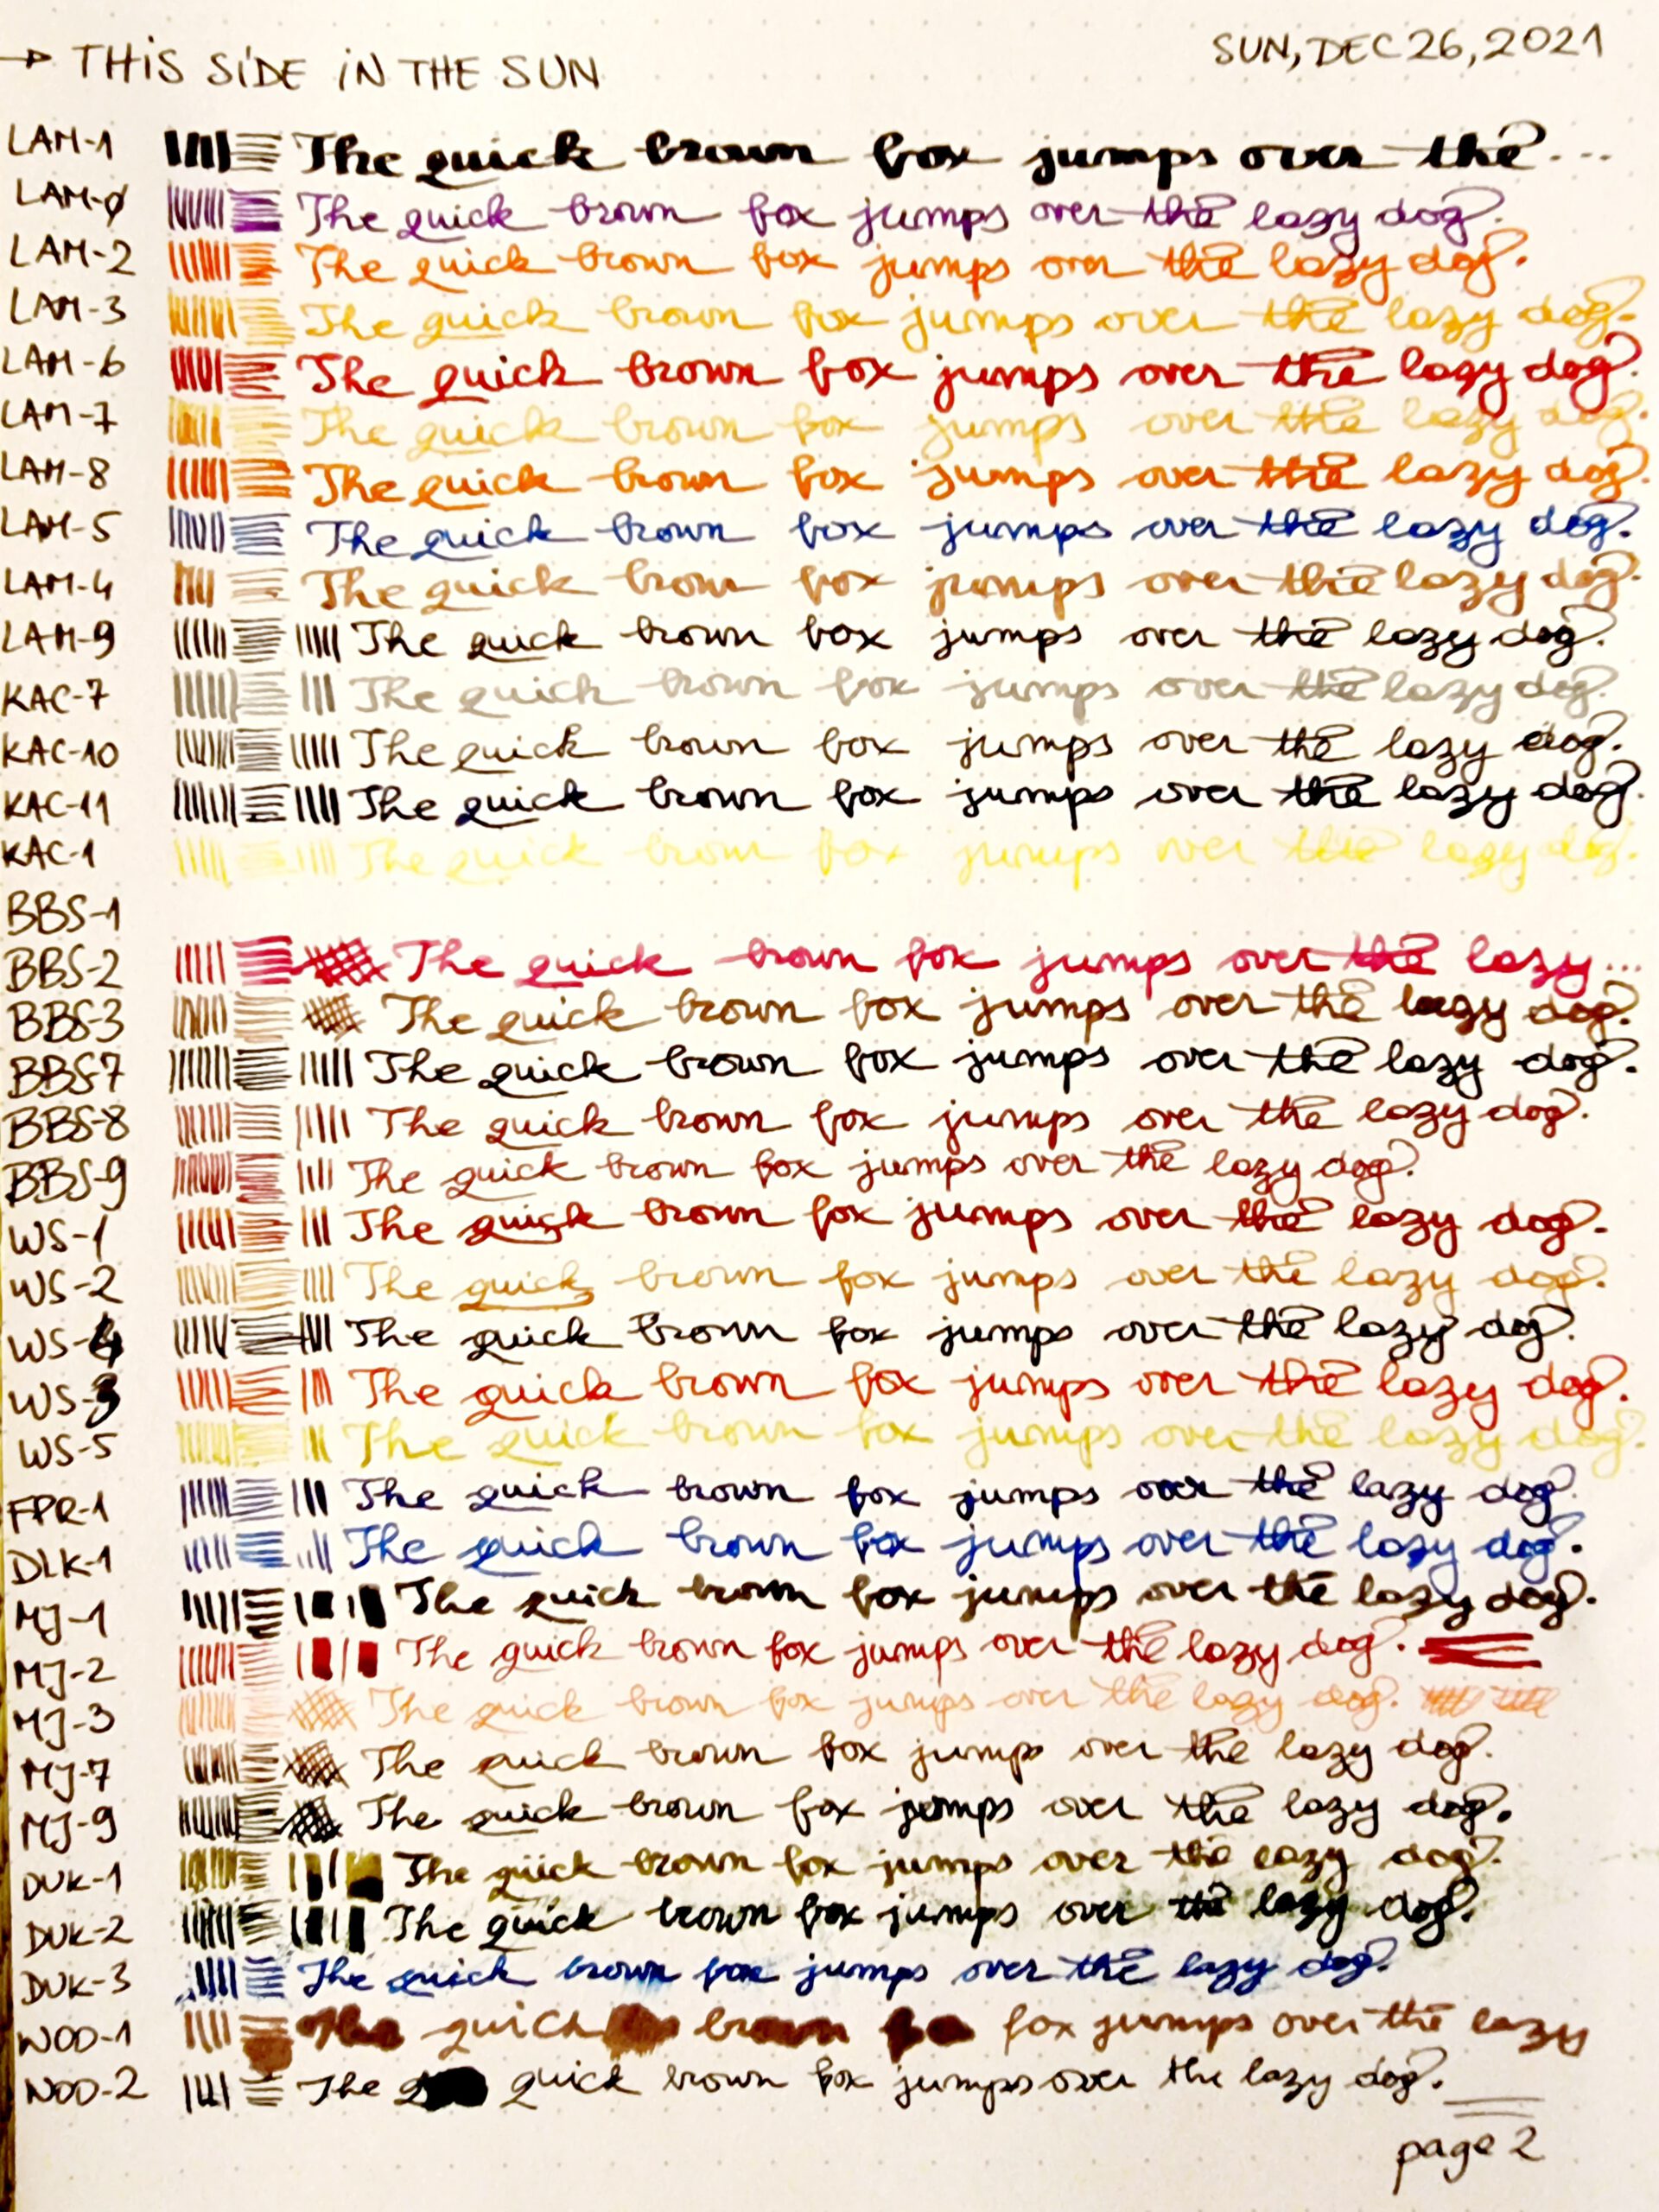 → THIS SIDE IN THE SUN
SUN, DEC 26, 2021
LAM-1 The quick brown fox jumps over the...
LAM-0 The quick brown fox jumps over the lazy dog.
LAM-2 The quick brown fox jumps over the lazy dog.
LAM-3 The quick brown fox jumps over the lazy dog.
LAM-6 The quick brown fox jumps over the lazy dog.
LAM-7 The quick brown fox jumps over the lazy dog.
LAM-8 The quick brown fox jumps over the lazy dog.
LAM-5 The quick brown fox jumps over the lazy dog.
LAM-4 The quick brown fox jumps over the lazy dog.
LAM-9 The quick brown fox jumps over the lazy dog.
KAC-7 The quick brown fox jumps over the lazy dog.
KAC-10 The quick brown fox jumps over the lazy dog.
KAC-11 The quick brown fox jumps over the lazy dog.
KAC-1 The quick brown fox jumps over the lazy dog.
BBS-1
BBS-2 The quick brown fox jumps over the lazy...
BBS-3 The quick brown fox jumps over the lazy dog.
BBS-7 The quick brown fox jumps over the lazy dog.
BBS-8 The quick brown fox jumps over the lazy dog.
BBS-9 The quick brown fox jumps over the lazy dog.
WS-1 The quick brown fox jumps over the lazy dog.
WS-2 The quick brown fox jumps over the lazy dog.
WS-4 The quick brown fox jumps over the lazy dog.
WS-3 The quick brown fox jumps over the lazy dog.
WS-5 The quick brown fox jumps over the lazy dog.
FPR-1 The quick brown fox jumps over the lazy dog.
DLK-1 The quick brown fox jumps over the lazy dog.
MJ-1 The quick brown fox jumps over the lazy dog.
MJ-2 The quick brown fox jumps over the lazy dog.
MJ-3 The quick brown fox jumps over the lazy dog.
MJ-7 The quick brown fox jumps over the lazy dog.
MJ-9 The quick brown fox jumps over the lazy dog.
DUK-1 The quick brown fox jumps over the lazy dog.
DUK-2 The quick brown fox jumps over the lazy dog.
DUK-3 The quick brown fox jumps over the lazy dog.
NOD-1 The quick brown fox jumps over the lazy
NOD-2 The quick brown fox jumps over the lazy dog.
page 2